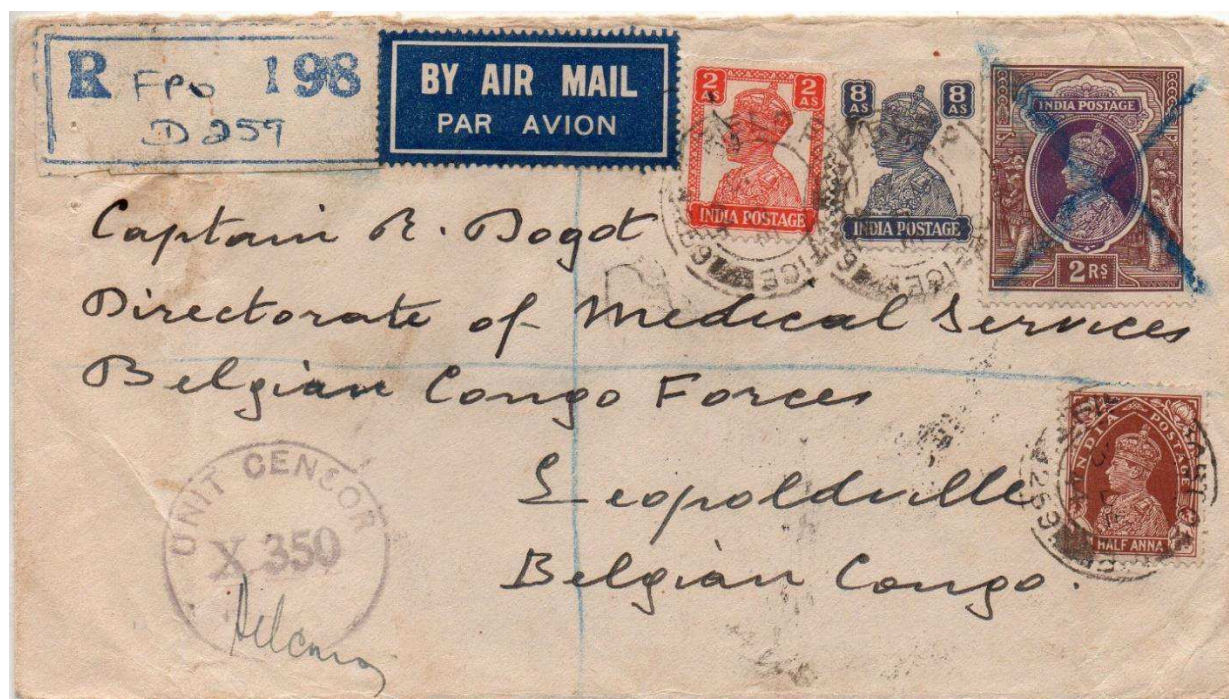 R FPO 198
D 259
BY AIR MAIL
PAR AVION
2 AS 2 AS
INDIA POSTAGE
8 AS 8 AS
INDIA POSTAGE
INDIA POSTAGE
2 RS
Captain R. Bogot
Directorate of Medical Services
Belgian Congo Forces
Leopoldville
Belgian Congo.
INDIA POSTAGE
HALF ANNA
UNIT CENSOR
X 350